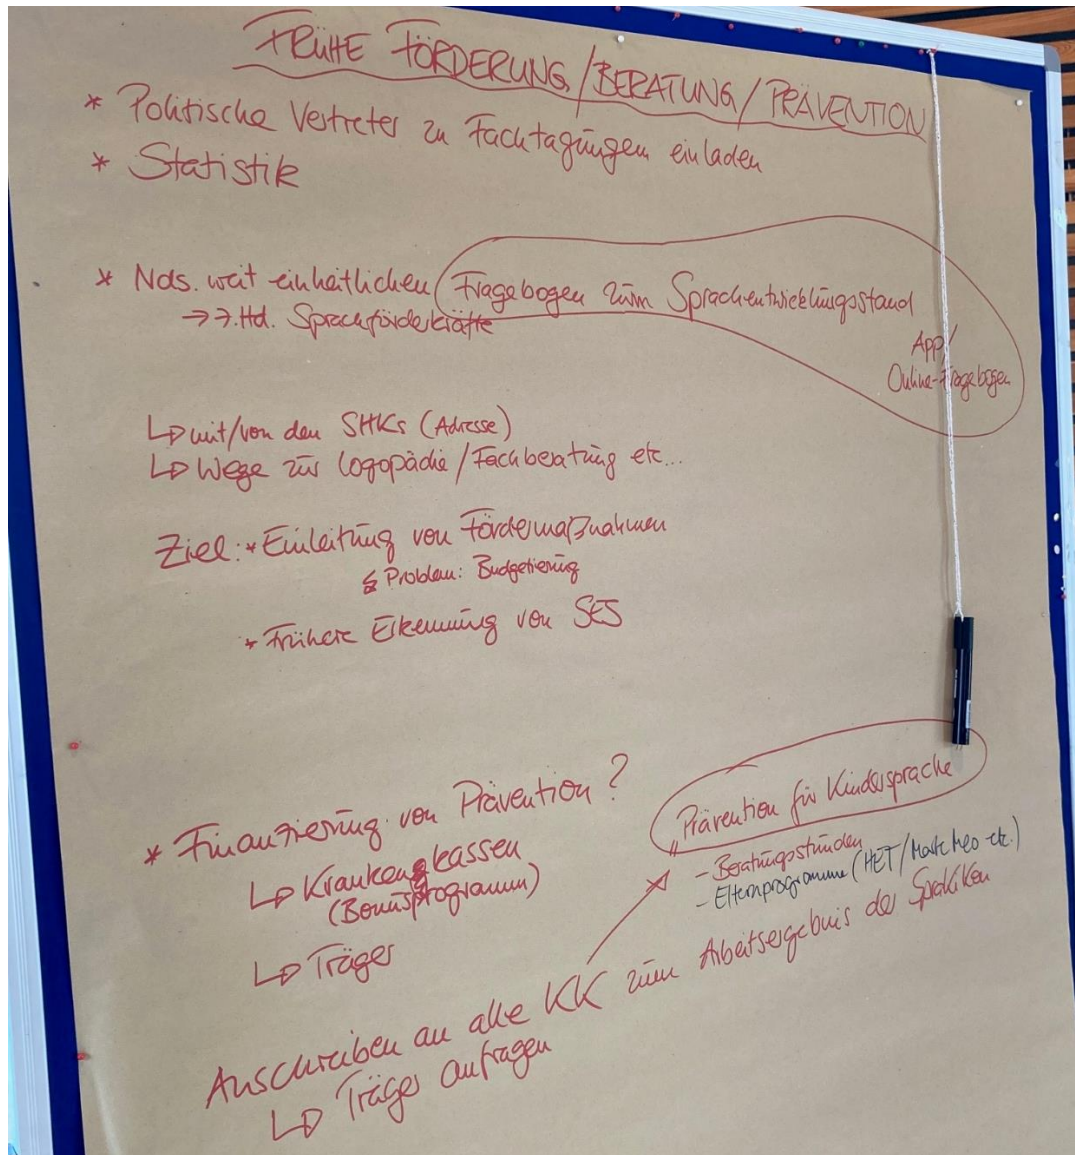 FRÜHE FÖRDERUNG/BERATUNG/PRÄVENTION
* Politische Vertreter zu Fachtagungen einladen
* Statistik
* Nds. weit einheitlichen Fragebogen zum Sprachentwicklungsstand
→ z.Hd. Sprachförderkräfte
App/
Online-Fragebogen
↳ mit/von den SHKs (Adresse)
↳ Wege zur Logopädie/Fachberatung etc...
Ziel: * Einleitung von Fördermaßnahmen
↯ Problem: Budgetierung
* Frühere Erkennung von SES
* Finanzierung von Prävention?
↳ Krankenkassen
(Bonusprogramm)
↳ Träger
Prävention für Kindersprache
- Beratungsstunden
- Elternprogramme (HET/Marte Meo etc.)
Anschreiben an alle KK zum Arbeitsergebnis der SpraKiKon
↳ Träger anfragen